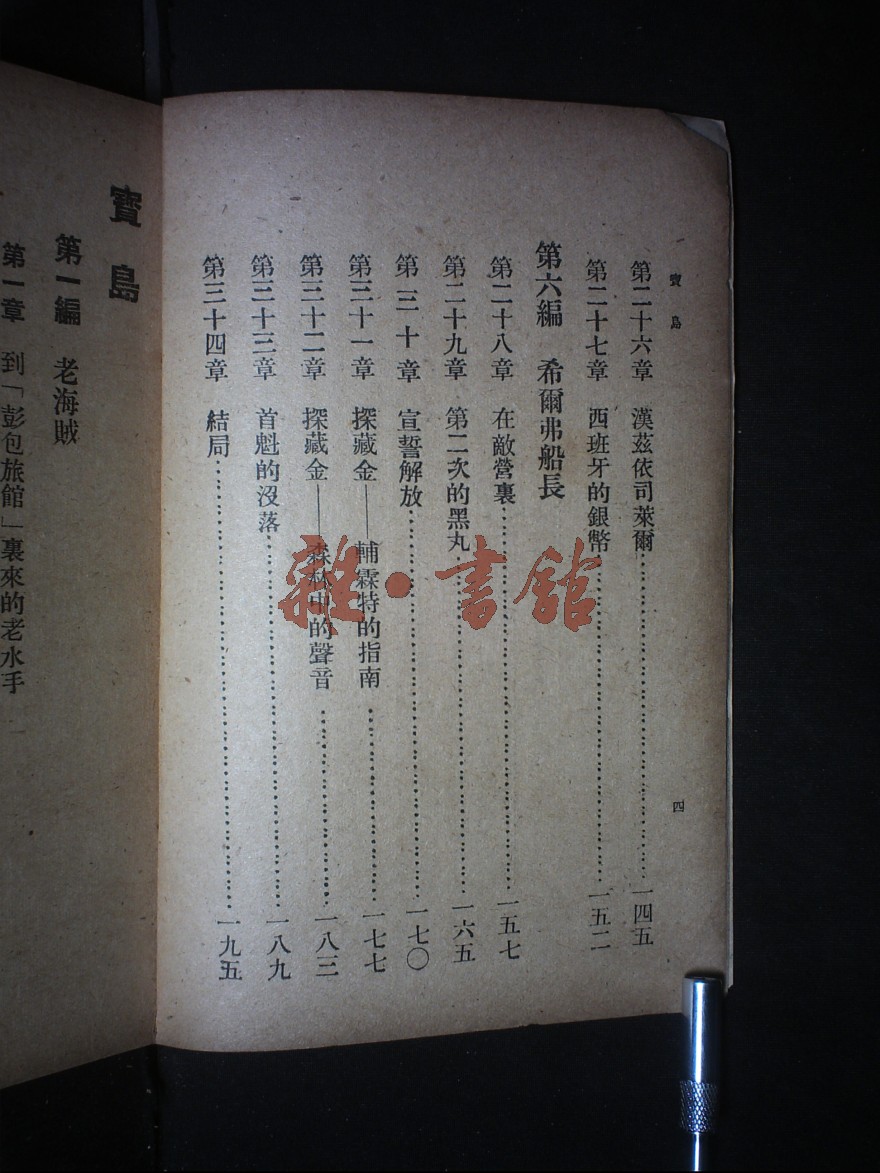 寶島
四
第二十六章 漢茲依司萊爾……一四五
第二十七章 西班牙的銀幣……一五二
第六編 希爾弗船長
第二十八章 在敵營裏……一五七
第二十九章 第二次的黑丸……一六五
第三十章 宣誓解放……一七〇
第三十一章 探藏金——輔霖特的指南……一七七
第三十二章 探藏金——森林中的聲音……一八三
第三十三章 首魁的沒落……一八九
第三十四章 結局……一九五
雜·書館
寶島
第一編 老海賊
第一章 到「彭包旅館」裏來的老水手